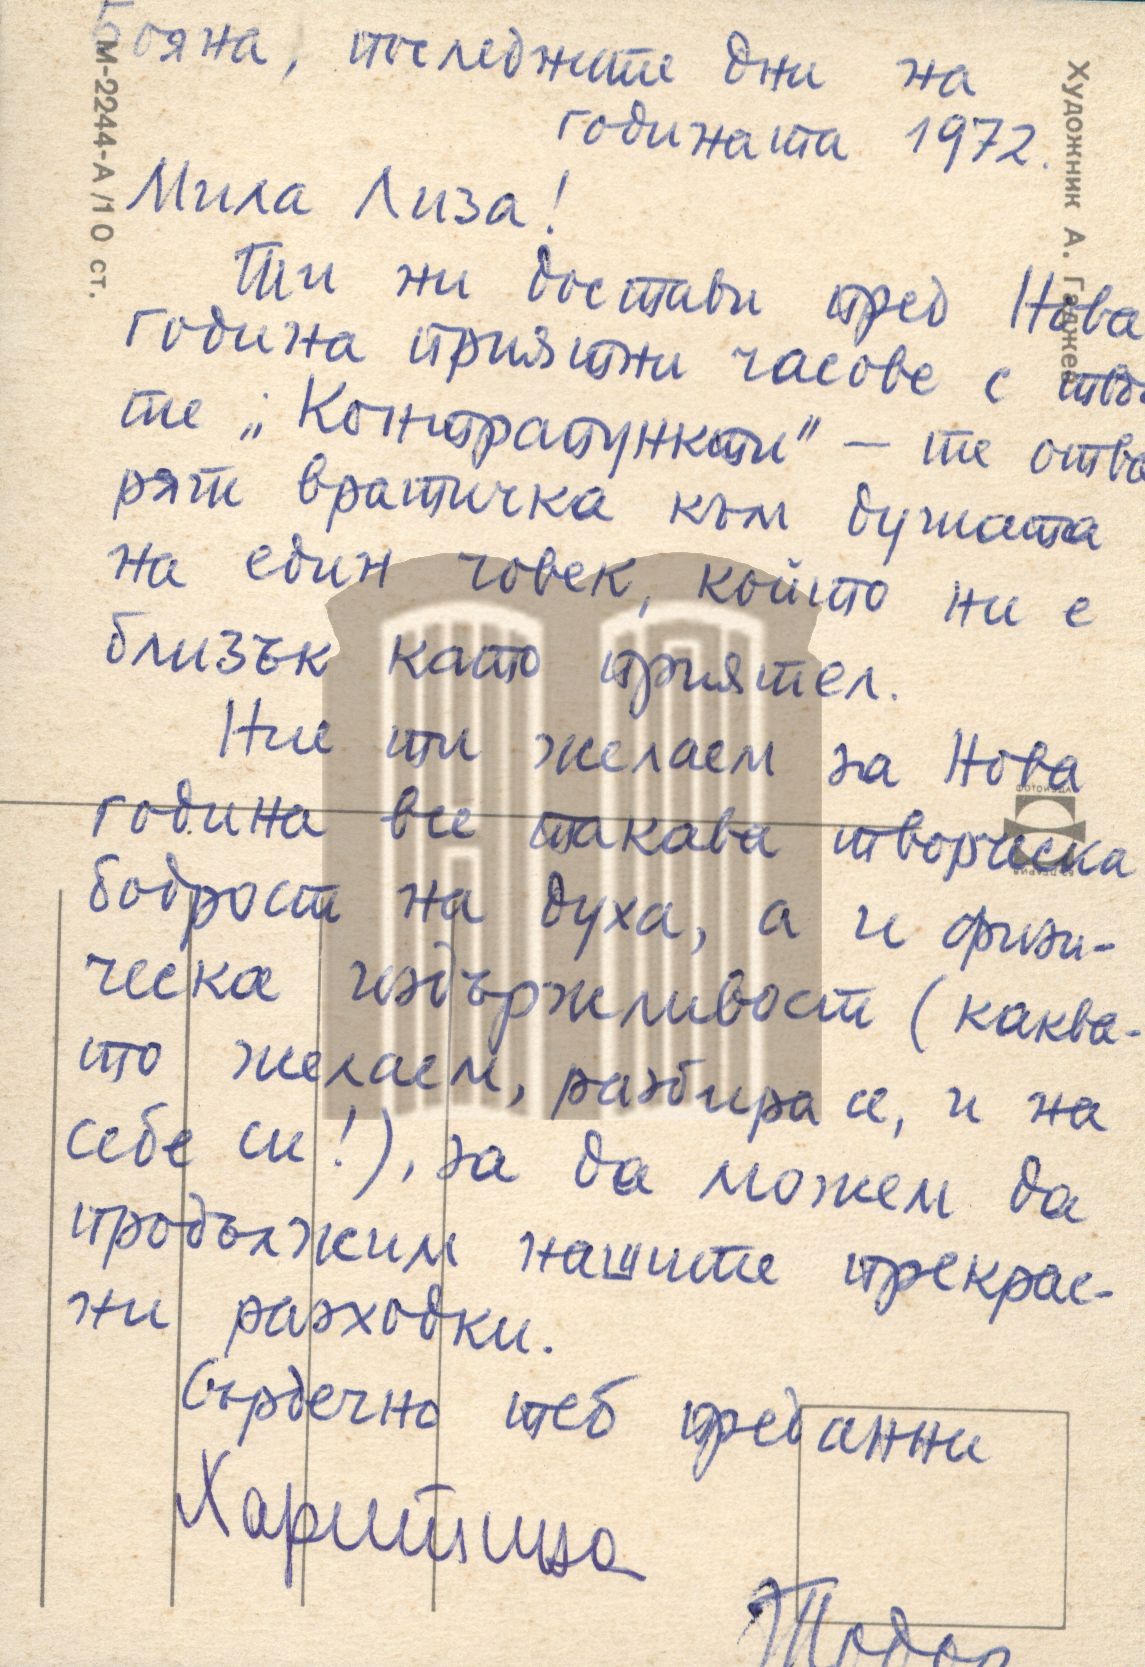 Бояна, последните дни на
годината 1972.
Мила Лиза!
Ти ни достави пред Нова
година приятни часове с твои
те „Контрапункти" — те отва
рят вратичка към душата
на един човек, който ни е
близък като приятел.
Ние ти желаем за Нова
година все такава творческа
бодрост на духа, а и физи-
ческа издържливост (каква-
то желаем, разбира се, и на
себе си!), за да можем да
продължим нашите прекрас-
ни разходки.
Сърдечно теб преданни
Харитина
Тодор
М-2244-А/10 ст.
Художник А. Гаджев